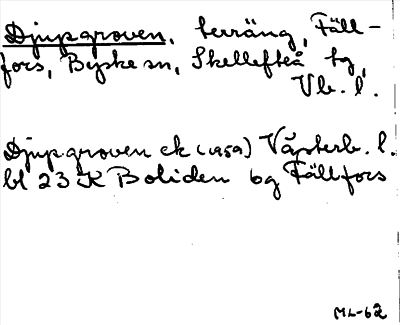 Djupgroven, terräng, Fäll-
fors, Byske sn, Skellefteå tg,
Vb. l.
Djupgroven ek (1959) Västerb. l.
bl 23 K Boliden 6g Fällfors
ML-62